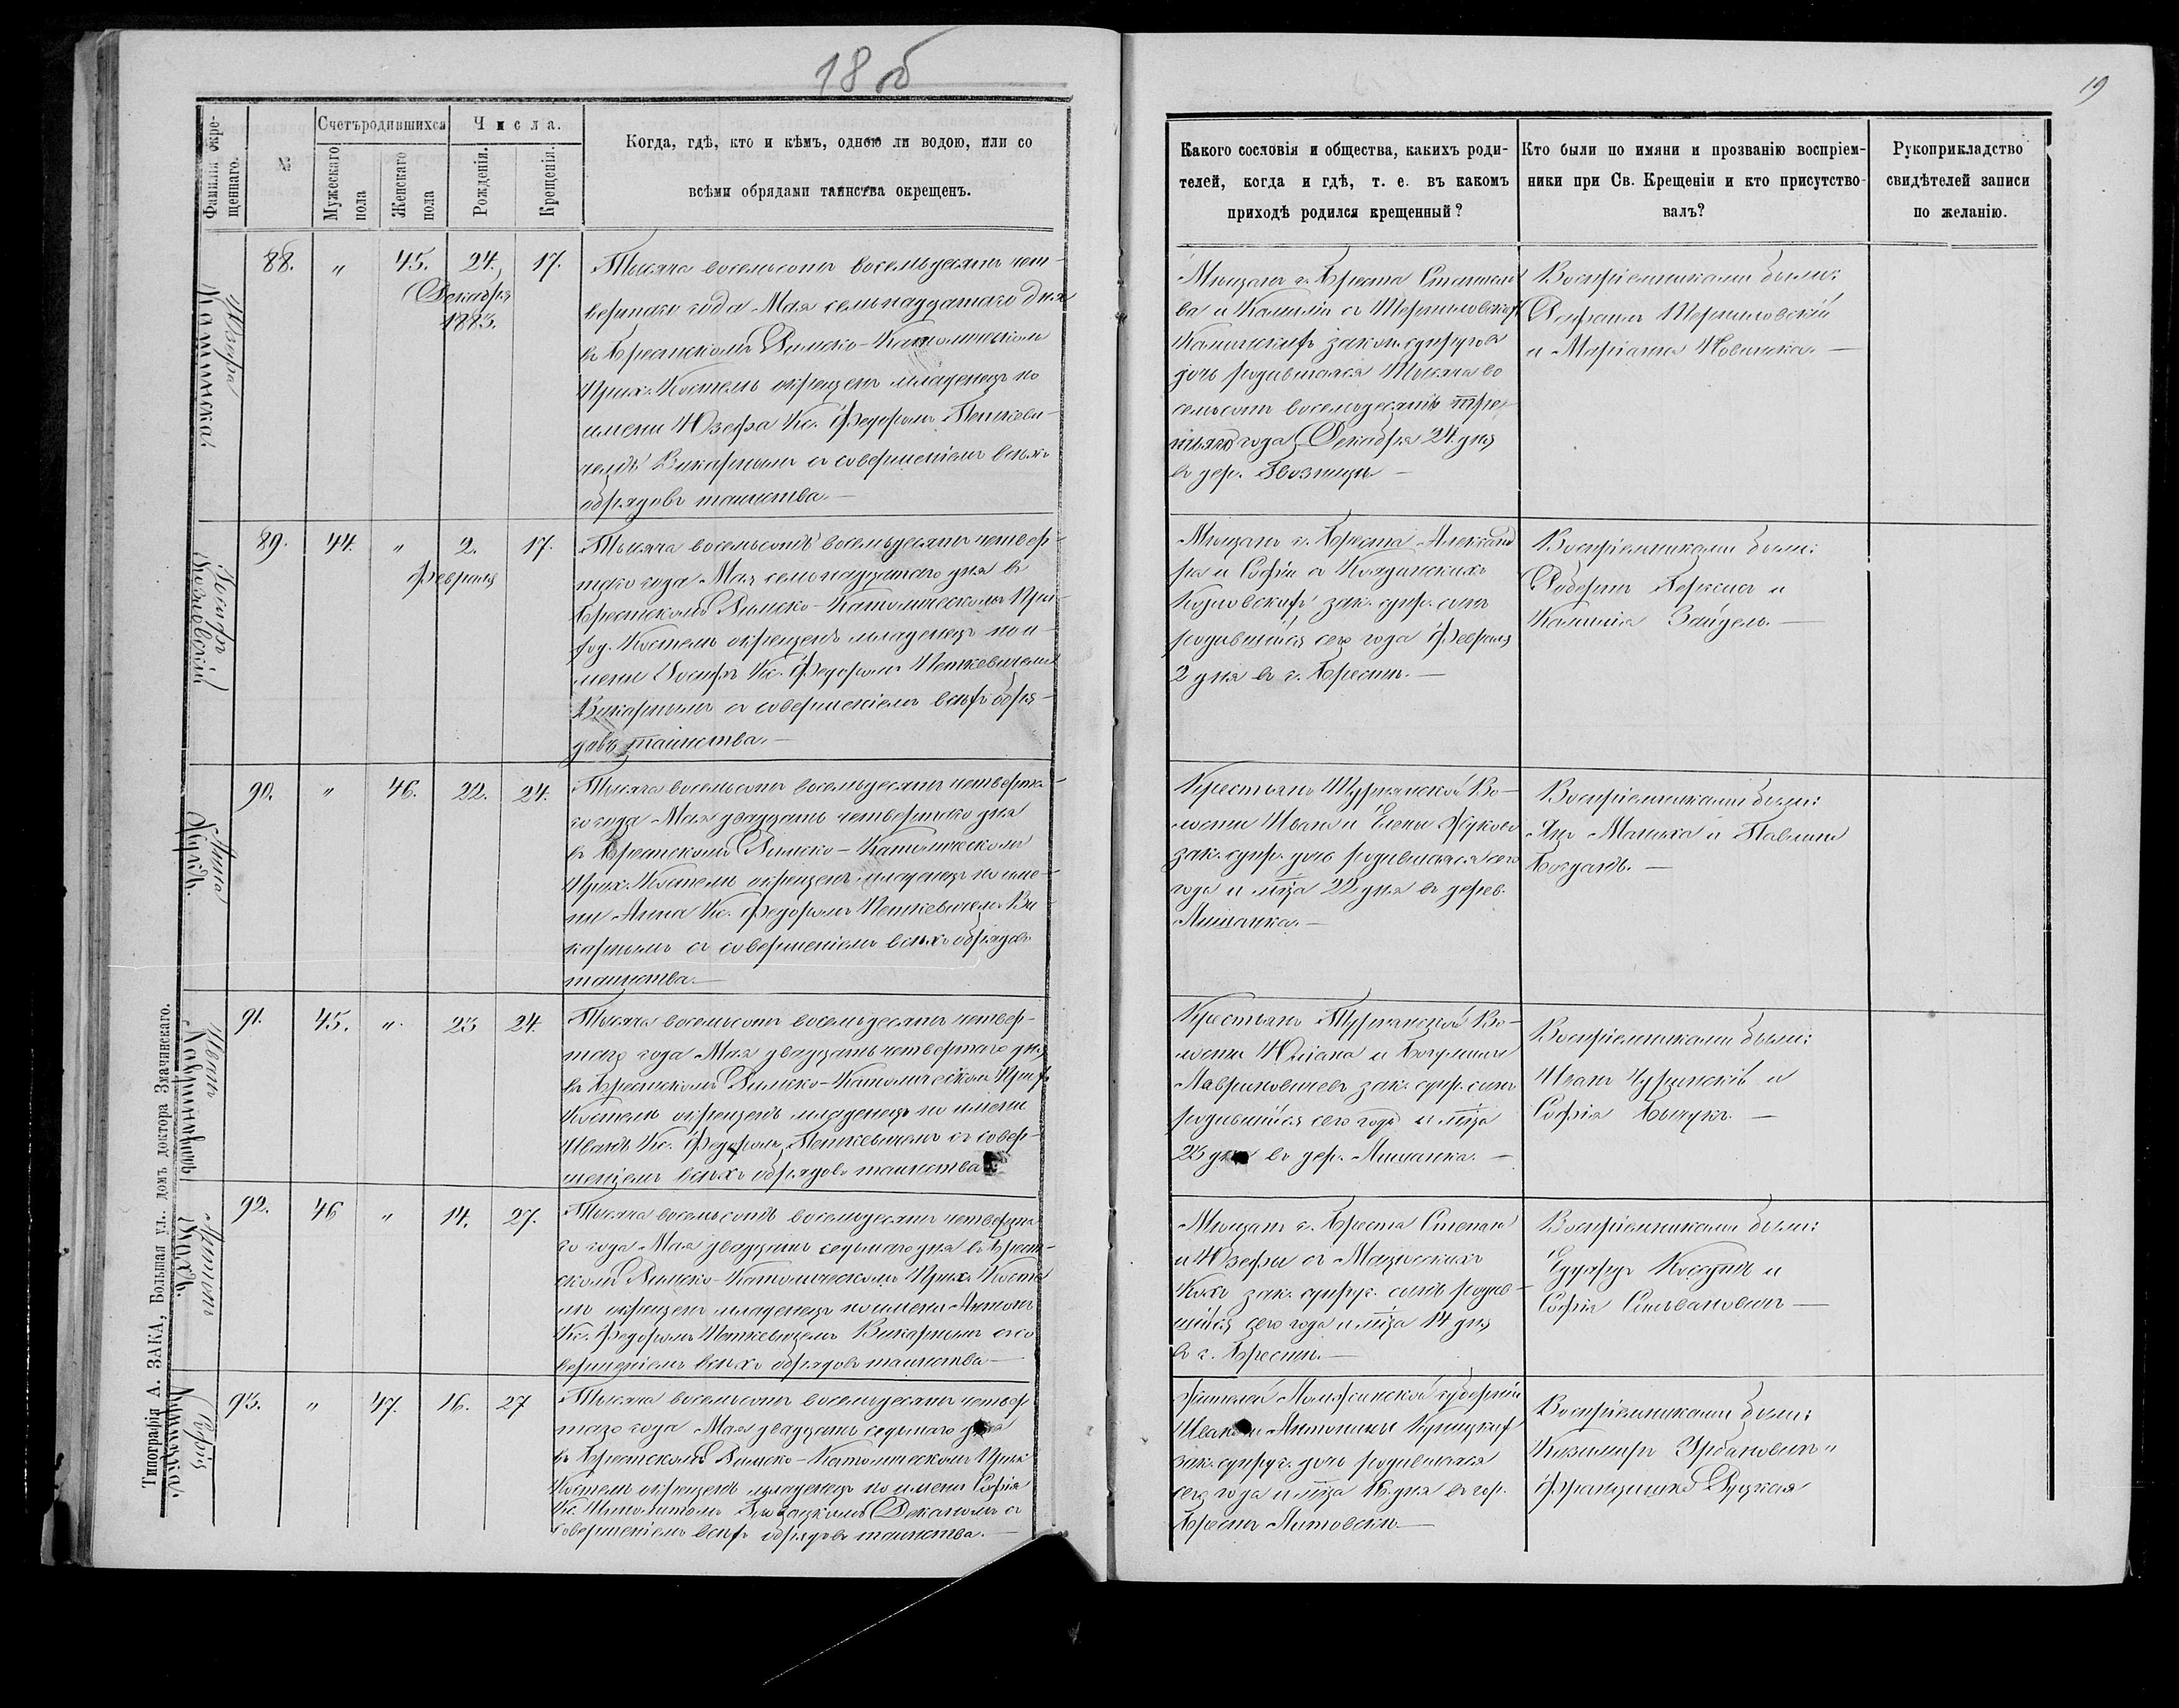 18 об
19
Фамилія окрещеннаго.
№
Счетъ родившихся
Мужескаго пола
Женскаго пола
Числа.
Рожденія.
Крещенія.
Когда, гдѣ, кто и кѣмъ, одною ли водою, или со
всѣми обрядами таинства окрещенъ.
Какого сословія и общества, какихъ роди-
телей, когда и гдѣ, т. е. въ какомъ
приходѣ родился крещенный?
Кто были по имяни и прозванію воспріем-
ники при Св. Крещеніи и кто присутство-
валъ?
Рукоприкладство
свидѣтелей записи
по желанію.
Юзефа
Каминска.
88. " 45. 24. 17.
Декабря
1883.
Тысяча восемьсотъ восемьдесятъ чет-
вертаго года Мая семьнадцатаго дня
въ Брестскомъ Римско-Католическомъ
Прих. Костелѣ окрещенъ младенецъ по
имени Юзефа Кс. Федоромъ Петкеви-
чемъ Викарнымъ съ совершеніемъ всѣхъ
обрядовъ таинства.—
Мѣщанъ г. Бреста Станисла
ва и Камиліи съ
Каминскихъ закон. супруговъ
дочь родившаяся Тысяча во
семьсотъ восемьдесятъ тре
тьяго года Декабря 24 дня
въ дер. —
Воспріемниками были:
и Маріанна Новицка.—
Іосифъ
Козловскій
89. 44. " 2. 17.
Февраля
Тысяча восемьсотъ восемьдесятъ четвер-
таго года Мая семьнадцатаго дня въ
Брестскомъ Римско-Католическомъ При-
ход. Костелѣ окрещенъ младенецъ по и-
мени Іосифъ Кс. Федоромъ Петкевичемъ
Викарнымъ съ совершеніемъ всѣхъ обря-
довъ таинства.—
Мѣщанъ г. Бреста Александ
ра и Софіи съ
Козловскихъ зак. супр. сынъ
родившійся сего года Февраля
2 дня въ г. Брестѣ.—
Воспріемниками были:
Робертъ и
Зайдель.—
Анна
Жукъ.
90. " 46. 22. 24.
Тысяча восемьсотъ восемьдесятъ четверта-
го года Мая двадцать четвертаго дня
въ Брестскомъ Римско-Католическомъ
Прих. Костелѣ окрещенъ младенецъ по име-
ни Анна Кс. Федоромъ Петкевичемъ Ви
карнымъ съ совершеніемъ всѣхъ обрядовъ
таинства.—
Крестьянъ Турнянской Во-
лости Ивана и Елены Жуковъ
зак. супр. дочь родившаяся сего
года и м̃ца 22 дня въ дерев.
Лищанка.—
Воспріемниками были:
Янъ и Павлина
Богданъ.—
Иванъ
Лавриновичъ
91. 45. ". 23 24.
Тысяча восемьсотъ восемьдесятъ четвер-
таго года Мая двадцать четвертаго дня
въ Брестскомъ Римско-Католическомъ Прих.
Костелѣ окрещенъ младенецъ по имени
Иванъ Кс. Федоромъ Петкевичемъ съ совер-
шеніемъ всѣхъ обрядовъ таинства
Крестьянъ Турнянской Во-
лости Юліана и
Лавриновичевъ зак. супр. сынъ
родившійся сего года и м̃ца
23 дня въ дер. Лищанка.—
Воспріемниками были:
Иванъ и
Софія —
Антонъ
Кохъ.
92. 46 " 14. 27.
Тысяча восемьсотъ восемьдесятъ четверта
го года Мая двадцать седьмаго дня въ Брест-
скомъ Римско-Католическомъ Прих. Косте
лѣ окрещенъ младенецъ по имени Антонъ
Кс. Федоромъ Петкевичемъ Викарнымъ съ со
вершеніемъ всѣхъ обрядовъ таинства—
Мѣщанъ г. Бреста Степана
и Юзефы съ
Кохъ зак. супруг. сынъ родив-
шійся сего года и м̃ца 14 дня
въ г. Брестѣ.—
Воспріемниками были:
Едуардъ и
Софія —
Софія
93. " 47. 16. 27
Тысяча восемьсотъ восемьдесятъ четвер
таго года Мая двадцать седьмаго дня
въ Брестскомъ Римско-Католическомъ Прих
Костелѣ окрещенъ младенецъ по имени Софія
Кс. Деканомъ съ
совершеніемъ всѣхъ обрядовъ таинства.—
Жителей Ломжинской губерніи
Ивана и Антонины
зак. супруг. дочь родившаяся
сего года и м̃ца 16 дня въ гор.
Брестъ Литовскѣ.—
Воспріемниками были:
Казимиръ Урбановичъ и
Францишка Руцкая
Типографія А. ЗАКА, Большая ул., домъ доктора Значинскаго.